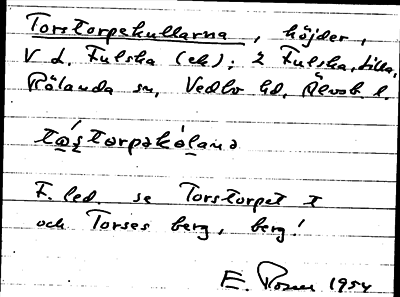 Torstorpekullarna, höjder,
V d. Fulska (ek); i Fulska, Lilla,
Rölanda sn, Vedbo hd, Älvsb l.
tɷ́storpəkólana
F. led. se Torstorpet t
och Torses berg, berg!
E. Rosen 1954